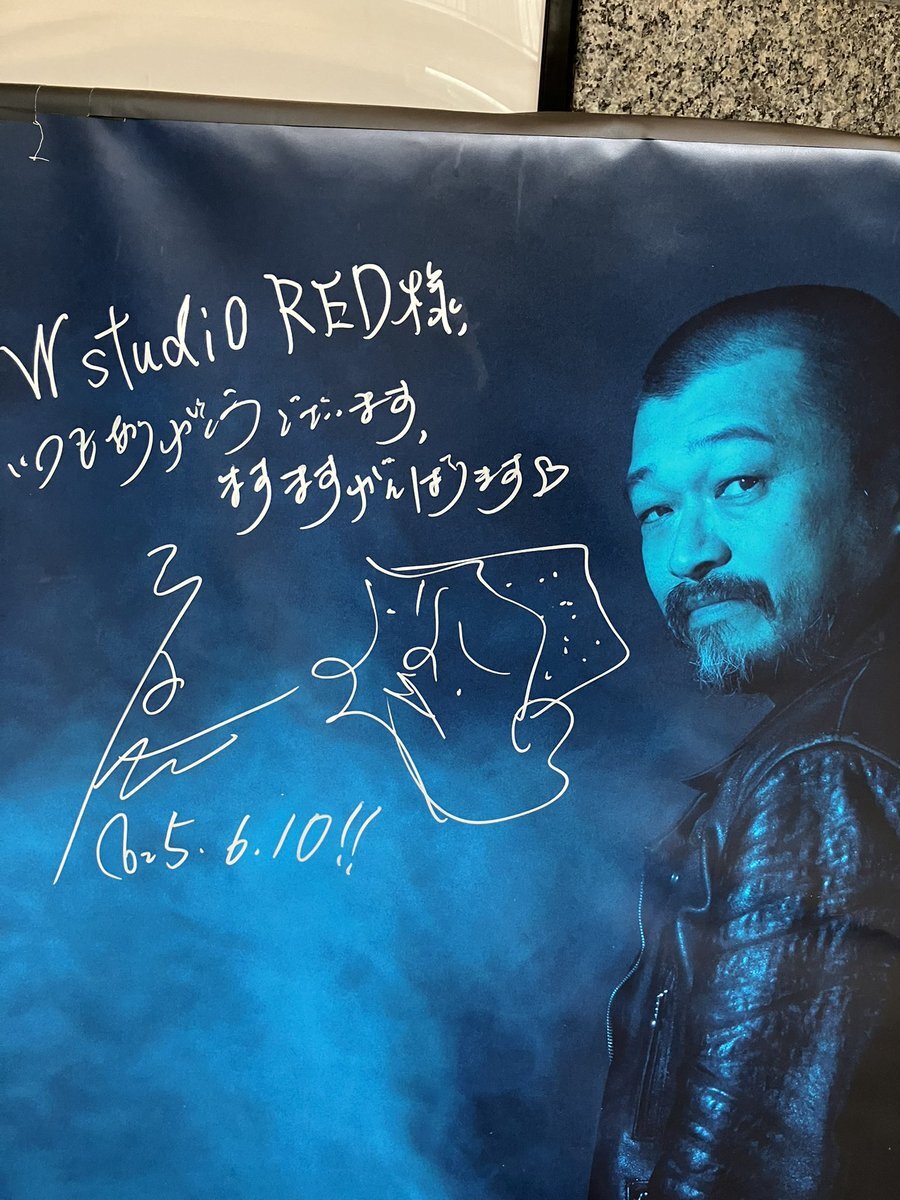 W studio RED様,
いつもありがとうございます,
ますますがんばります♡
2025.6.10!!